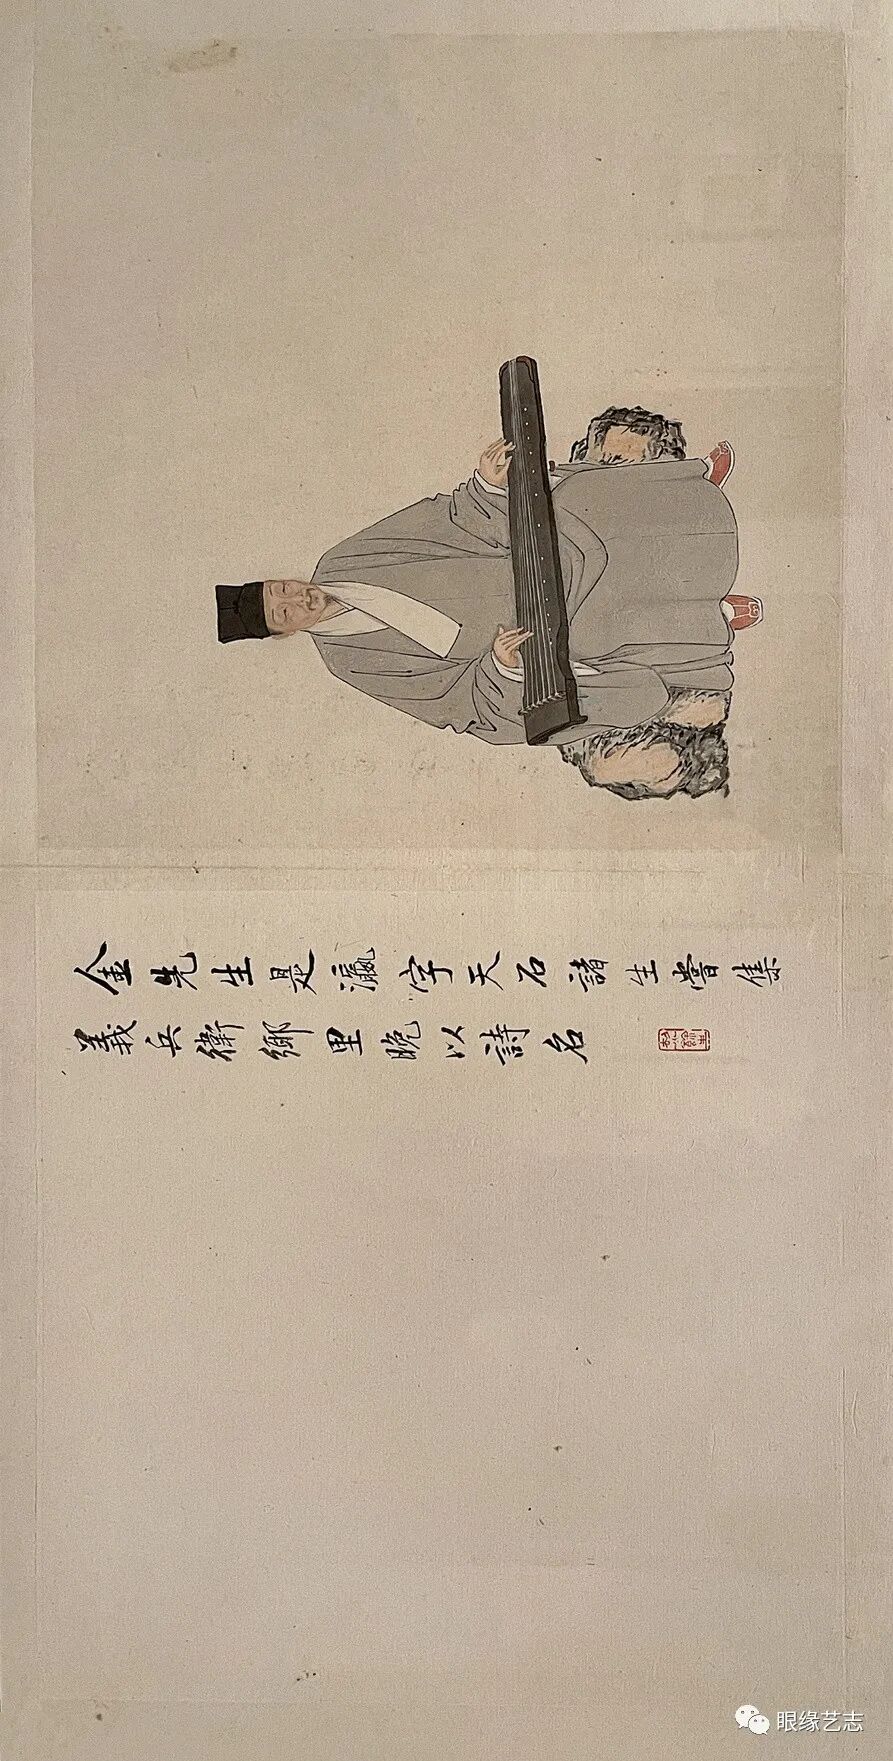 金先生是瀛字天石諸生嘗集
義兵衛鄉里晚以詩名
眼缘艺志